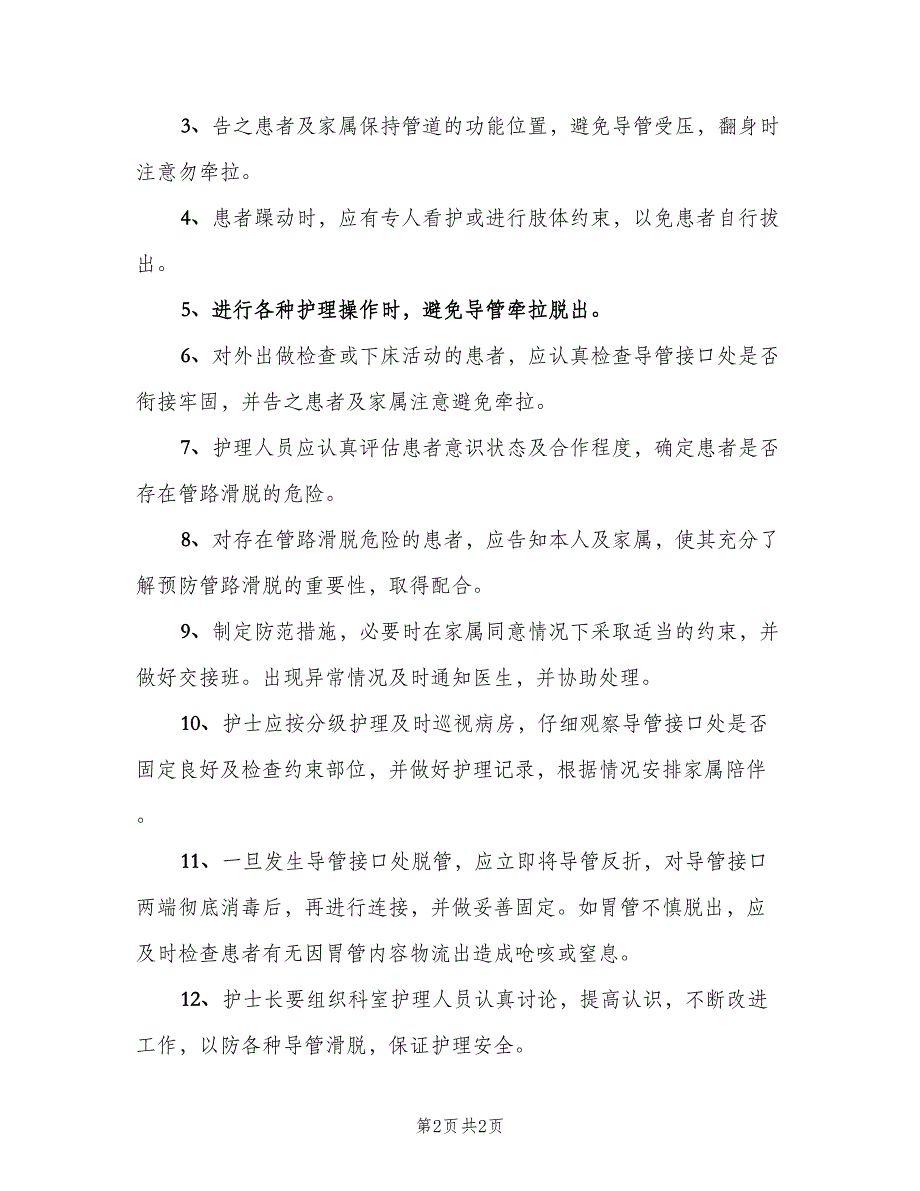 3、告之患者及家属保持管道的功能位置，避免导管受压，翻身时
注意勿牵拉。
4、患者躁动时，应有专人看护或进行肢体约束，以免患者自行拔
出。
5、进行各种护理操作时，避免导管牵拉脱出。
6、对外出做检查或下床活动的患者，应认真检查导管接口处是否
衔接牢固，并告之患者及家属注意避免牵拉。
7、护理人员应认真评估患者意识状态及合作程度，确定患者是否
存在管路滑脱的危险。
8、对存在管路滑脱危险的患者，应告知本人及家属，使其充分了
解预防管路滑脱的重要性，取得配合。
9、制定防范措施，必要时在家属同意情况下采取适当的约束，并
做好交接班。出现异常情况及时通知医生，并协助处理。
10、护士应按分级护理及时巡视病房，仔细观察导管接口处是否
固定良好及检查约束部位，并做好护理记录，根据情况安排家属陪伴
。
11、一旦发生导管接口处脱管，应立即将导管反折，对导管接口
两端彻底消毒后，再进行连接，并做妥善固定。如胃管不慎脱出，应
及时检查患者有无因胃管内容物流出造成呛咳或窒息。
12、护士长要组织科室护理人员认真讨论，提高认识，不断改进
工作，以防各种导管滑脱，保证护理安全。
第2页 共2页